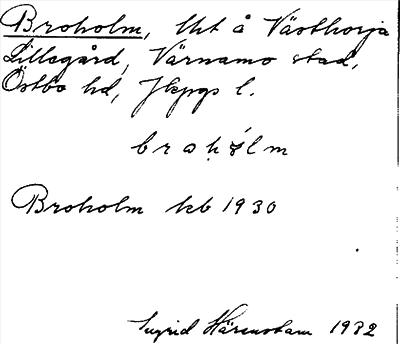 Broholm, lht å Västhorja
Lillegård, Värnamo stad,
Östbo hd, Jkpgs l.
broḥólm
Broholm kb 1930
Ingrid Härenstam 1932